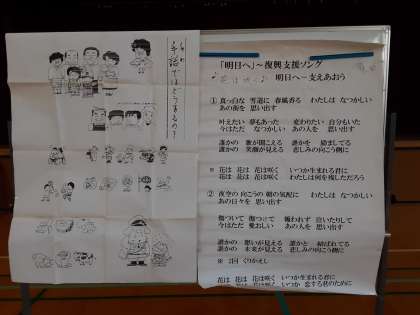 手話ではどうするの?
「明日へ」～復興支援ソング
明日へ－支えあおう
① 真っ白な 雪道に 春風香る わたしは なつかしい
あの街を 思い出す
叶えたい 夢もあった 変わりたい 自分もいた
今はただ なつかしい あの人を 思い出す
誰かの 歌が聞こえる 誰かを 励ましてる
誰かの 笑顔が見える 悲しみの向こう側に
※ 花は 花は 花は咲く いつか生まれる君に
花は 花は 花は咲く わたしは何を残しただろう
② 夜空の 向こうの 朝の気配に わたしは なつかしい
あの日々を 思い出す
傷ついて 傷つけて 報われず 泣いたりして
今はただ 愛おしい あの人を 思い出す
誰かの 想いが見える 誰かと 結ばれてる
誰かの 未来が見える 悲しみの向こう側に
※ 2回 くりかえし
花は 花は 花は咲く いつか生まれる君に
花は 花は 花は咲く いつか 恋する君のために